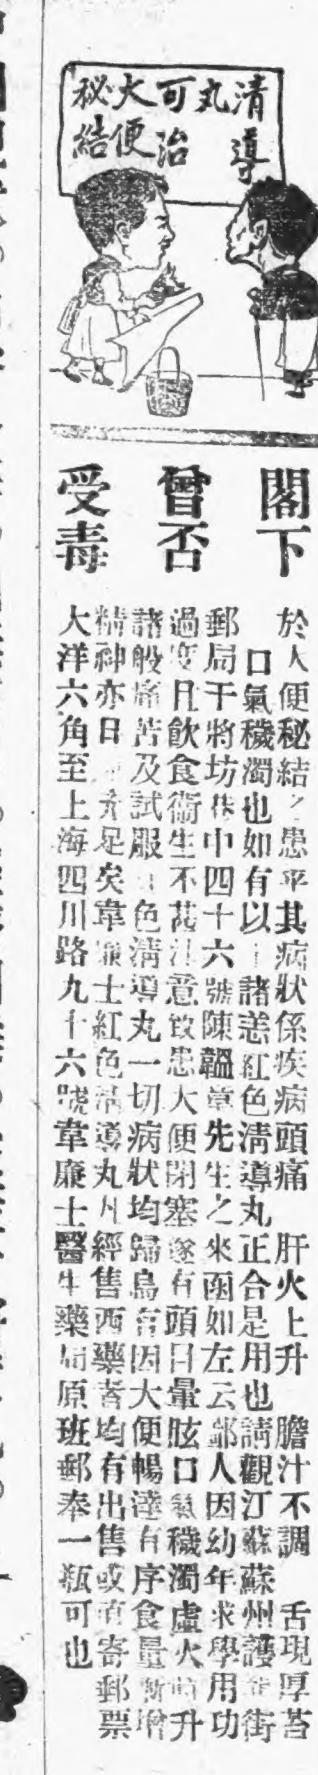 清導
丸
可治
大便
秘結
閣下
曾否
受毒
於人便秘結之患乎其病狀係疾病頭痛 肝火上升 膽汁不調 舌現厚苔
口氣穢濁也如有以上諸恙紅色淸導丸正合是用也請觀江蘇蘇州護龍街
郵局干將坊巷中四十六號陳韞章先生之來函如左云鄙人因幼年求學用功
過度且飲食衞生不甚注意致患大便閉塞遂有頭目暈眩口氣穢濁虛火時升
諸般痛苦及試服紅色淸導丸一切病狀均歸烏有因大便暢達有序食量漸增
精神亦日 充足矣韋廉士紅色淸導丸凡經售西藥者均有出售或直寄郵票
大洋六角至上海四川路九十六號韋廉士醫生藥局原班郵奉一瓶可也